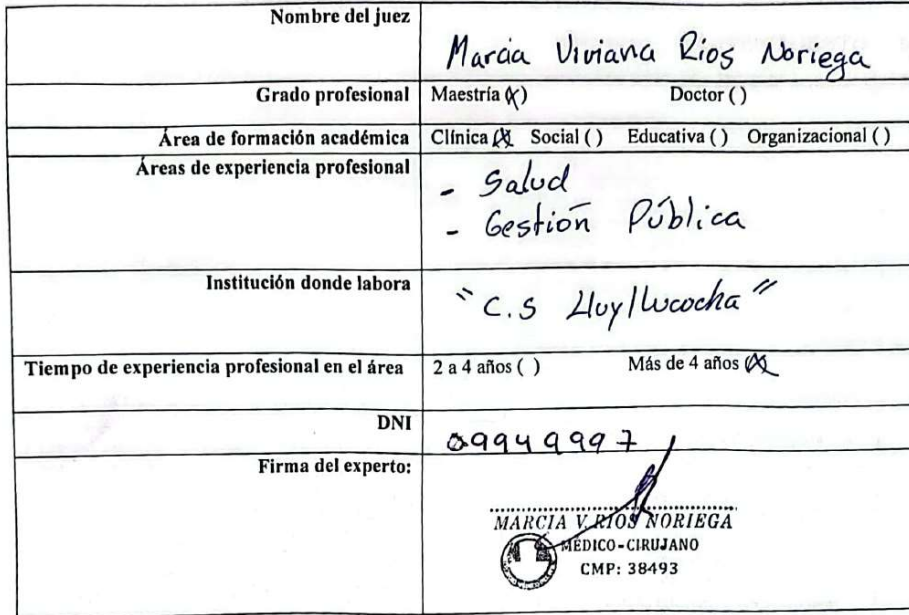 Nombre del juez
Marcia Viviana Rios Noriega
Grado profesional
Maestría (X) Doctor ( )
Área de formación académica
Clínica (X) Social ( ) Educativa ( ) Organizacional ( )
Áreas de experiencia profesional
- Salud
- Gestión Pública
Institución donde labora
"C.S Lluyllucocha"
Tiempo de experiencia profesional en el área
2 a 4 años ( ) Más de 4 años (X)
DNI
09949997
Firma del experto:
MARCIA V. RIOS NORIEGA
MÉDICO-CIRUJANO
CMP: 38493